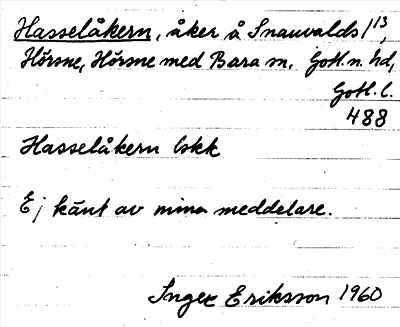 Hasselåkern, åker å Snauvalds 1/13,
Hörsne, Hörsne med Bara sn, Gotl. n. hd,
Gotl. l.
488
Hasselåkern Eskk
Ej känt av mina meddelare.
Inger Eriksson 1960